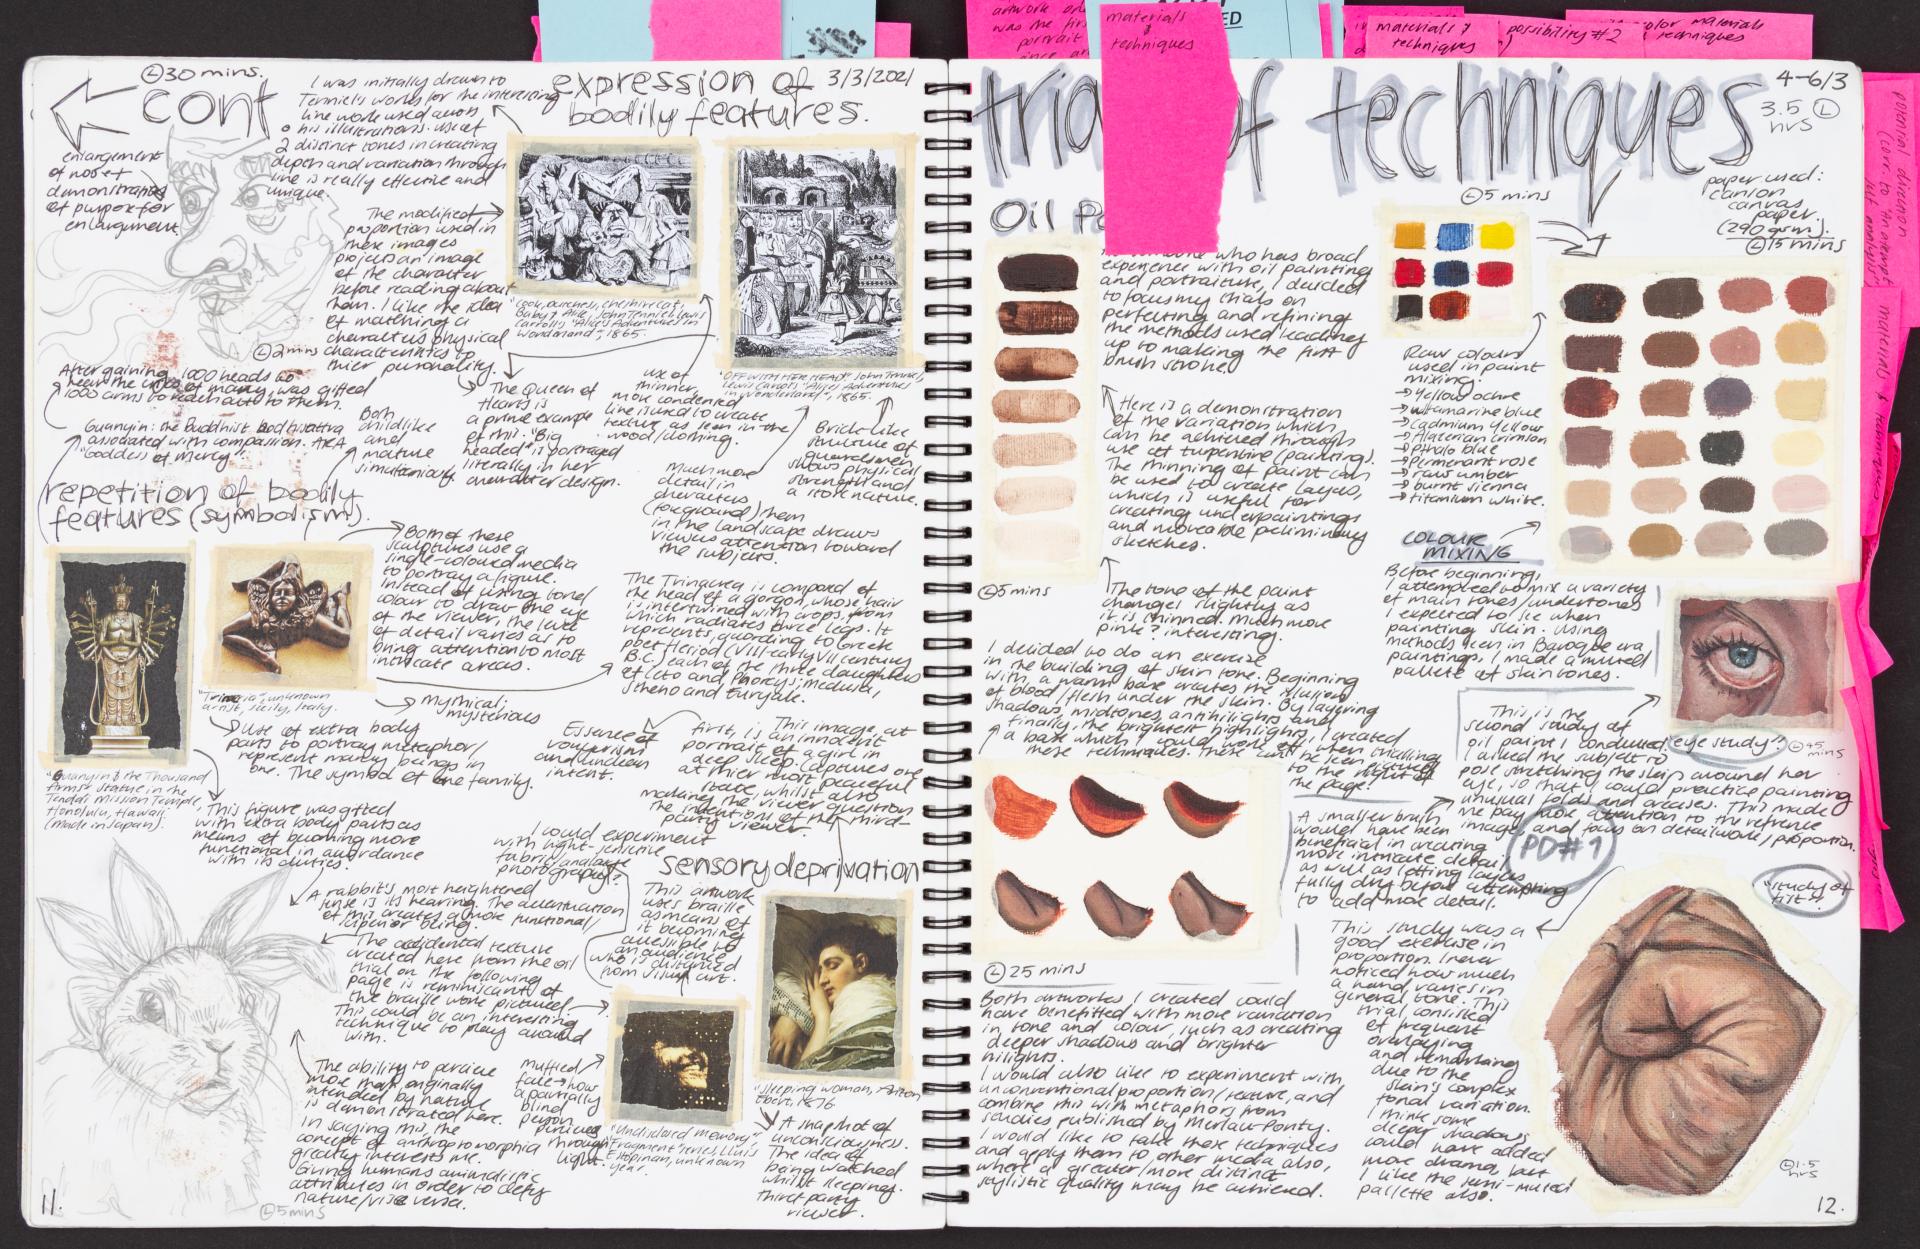 artwork on
was the fir
portrait
materials
&
techniques
ED
materials &
techniques
possibility #2
color materials
techniques
potential direction
materials & techniques
30 mins.
cont
enlargement
of nose +
demonstration
of purpose for
enlargement.
I was initially drawn to
Tenniel's works for the interesting
line work used across
his illustrations. use of
2 distinct tones in creating
depth and variation through
line is really effective and
unique.
expression of
bodily features.
3/3/2021
The modified
proportion used in
these images
projects an image
of the character
before reading about
them. I like the idea
of matching a
characters physical
characteristics to
thier personality.
"Cook, duchess, cheshire cat,
Baby & Alice, John Tenniel, Lewis
Carroll's "Alice's Adventures in
Wonderland", 1865.
"OFF WITH HER HEAD!" John Tenniel,
Lewis Carroll's "Alice's Adventures
in Wonderland", 1865.
2 mins
After gaining 1000 heads to
hear the cries of many, was gifted
1000 arms to reach out to them.
Guanyin: the Buddhist bodhisattva
associated with compassion. AKA
"Goddess of Mercy".
Both
childlike
and
mature
simultaneously.
The Queen of
Hearts is
a prime example
of this. "Big
headed" is portrayed
literally in her
character design.
use of
thinner,
more condensed
line is used to create
texture as seen in the
wood/clothing.
Brick-like
structure of
guardsmen
shows physical
strength and
a stoic nature.
Much more
detail in
characters
(foreground) then
in the landscape draws
viewers attention toward
the subjects.
repetition of bodily
features (symbolism).
Both of these
sculptures use a
single-coloured media
to portray a figure.
Instead of using tonal
colour to draw the eye
of the viewer, the level
of detail varies as to
bring attention to most
intricate areas.
The Trinacria is composed of
the head of a gorgon, whose hair
is intertwined with crops, from
which radiates three legs. It
represents, according to Greek
poet Hesiod (VIII-early VII century
B.C.) each of the three daughters
of Ceto and Phorcys; medusa,
Stheno and Euryale.
"Trinacria" unknown
artist, Sicily, Italy.
Mythical;
mysterious
Use of extra body
parts to portray metaphor/
represent many beings in
one. The symbol of one family.
"Guanyin & the Thousand
Arms" statue in the
Tendai Mission Temple,
Honolulu, Hawaii
(made in Japan).
This figure was gifted
with extra body parts as
means of becoming more
functional in accordance
with its duties.
Essence of
voyeurism
and unclean
intent.
This image, at
first, is an innocent
portrait of a girl in
deep sleep. Captures one
at thier most peaceful
state, whilst also
making the viewer question
the intentions of the third-
party viewer.
I could experiment
with light-sensitive
fabric/analogue
photography?
sensory deprivation
This artwork
uses braille
as means of
it becoming
accessible to
an audience
who is distanced
from visual art.
A rabbit's most heightened
sense is its hearing. The accentuation
of this creates a more functional/
superior being.
The accidental texture
created here from the oil
trial on the following
page is reminiscent of
the braille work pictured.
This could be an interesting
technique to play around
with.
The ability to percieve
more than originally
intended by nature
is demonstrated here.
In saying this, the
concept of anthropomorphia
greatly interests me.
Giving humans animalistic
attributes in order to defy
nature/vise versa.
Muffled
face → how
a partially
blind
person
percieves
through
light.
"Undisclosed memory",
Fragment series, Lluis
Estopinan, unknown
year.
"Sleeping woman, Anton
Ebert, 1876
A snapshot of
unconsciousness.
The idea of
being watched
whilst sleeping.
third party
viewer.
5 mins
11.
trial of techniques
4-6/3
3.5
hrs
Oil Pa
who has broad
experience with oil painting
and portraiture, I decided
to focus my trials on
perfecting and refining
the methods used leading
up to making the first
brush stroke.
5 mins
paper used:
canson
canvas
paper.
(290gsm).
15 mins
Here is a demonstration
of the variation which
can be achieved through
use of turpentine (painting).
The thinning of paint can
be used to create layers,
which is useful for
creating underpaintings
and moveable peliminary
sketches.
Raw colours
used in paint
mixing:
→ Yellow ochre
→ ultamarine blue
→ Cadmium Yellow
→ Alizerian crimson
→ Pthalo blue
→ Permenant rose
→ raw umber
→ burnt sienna
→ titanium white.
COLOUR
MIXING
Before beginning,
I attempted to mix a variety
of main tones/undertones
I expected to see when
painting skin. Using
methods seen in Baroque era
paintings, I made a muted
pallete of skin tones.
5 mins
The tone of the paint
changes slightly as
it is thinned. Much more
pink? interesting.
I decided to do an exercise
in the building of skin tone. Beginning
with a warm base creates the illusion
of blood/flesh under the skin. By layering
shadows, midtones, antihilights and
finally, the brightest highlights, I created
a base which I could work off when trialling
these techniques. These can be seen pictured
to the right of
the page.
This is the
second study of
oil paint I conducted, "eye study".
45
mins
I asked the subject to
pose stretching the skin around her
eye, so that I could practice painting
unusual folds and creases. This made
me pay more attention to the refrence
image, and focus on detail work/proportion.
PD#1
A smaller brush
would have been
beneficial in creating
more intricate detail
as well as letting layers
fully dry before attempting
to add more detail.
"study of
fist".
25 mins
Both artworks I created could
have benefitted with more variation
in tone and colour, such as creating
deeper shadows and brighter
hilights.
I would also like to experiment with
unconventional proportion/texture, and
combine this with metaphors from
studies published by Merleau-Ponty.
I would like to take these techniques
and apply them to other media also,
where a greater/more distinct
stylistic quality may be achieved.
This study was a
good exercise in
proportion. I never
noticed how much
a hand varies in
general tone. This
trial consisted
of frequent
overlaying
and remarking
due to the
skin's complex
tonal variation.
I think some
deeper shadows
could have added
more drama, but
I like the semi-muted
pallette also.
1.5
hrs
12.